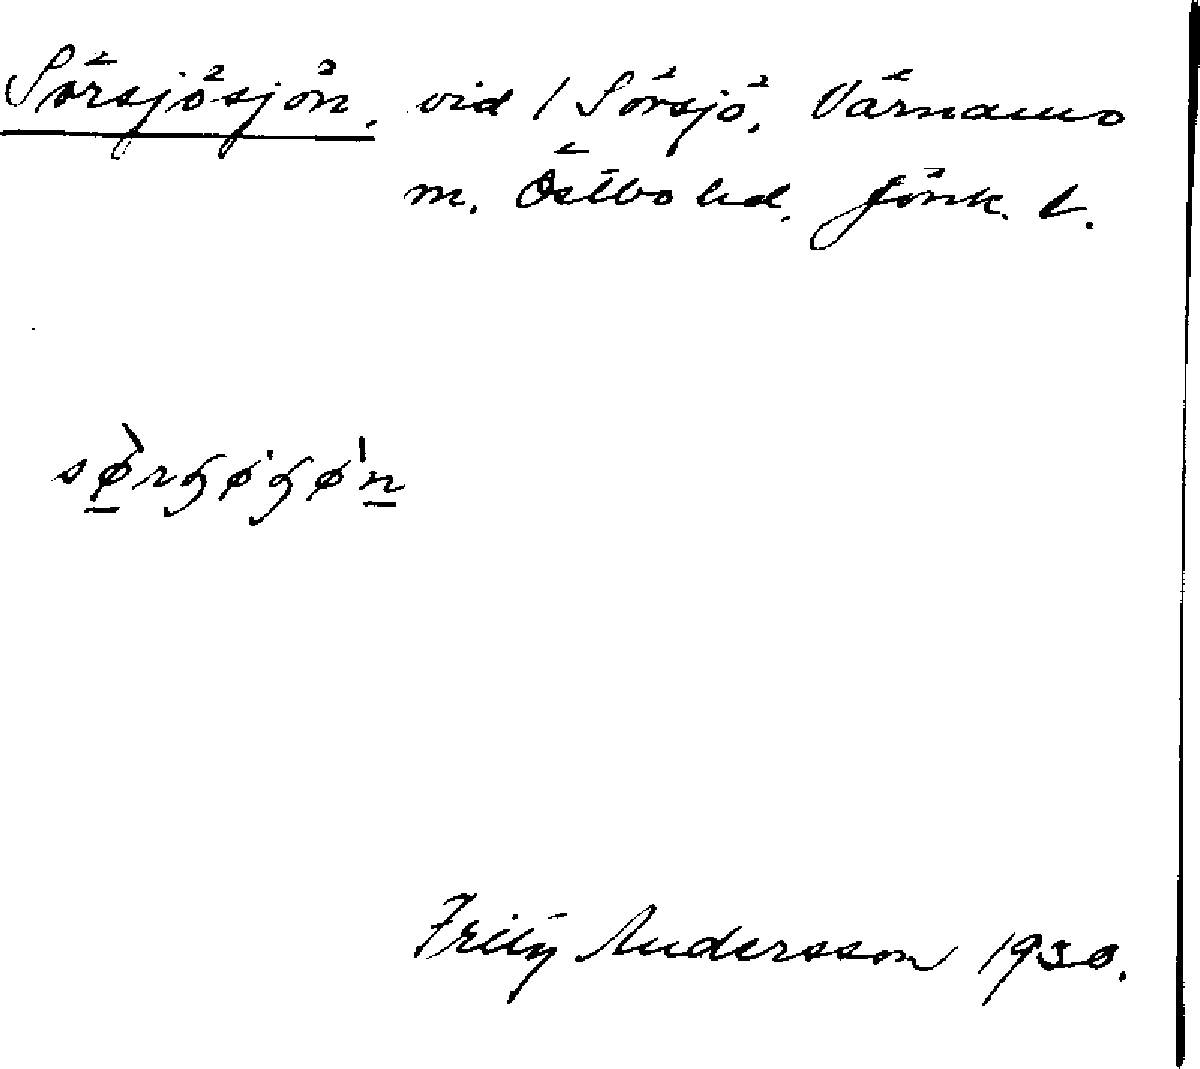 Sörsjösjön. vid / Sörsjö, Värnamo
m. Östbo hd. Jönk. l.
sø̀rɧøˈɧøˈn
Fritz Andersson 1930.